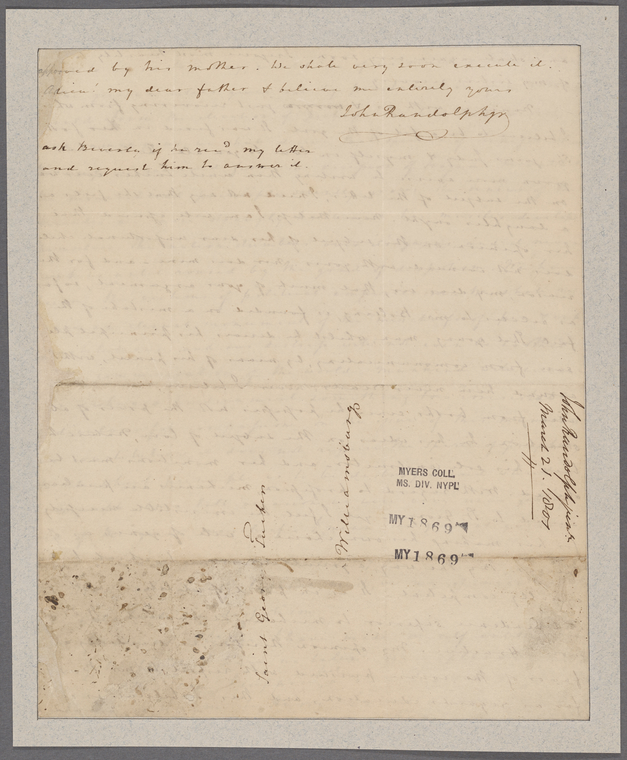 by his mother. We shall very soon execute it.
Adieu! my dear father & believe me entirely yours
John Randolph jr
ask Beverley if he recd. my letter
and request him to answer it.
Saint George Tucker
Williamsburg
John Randolph junr.
March 21. 1801
MYERS COLL.
MS. DIV. NYPL
MY 1869
MY 1869